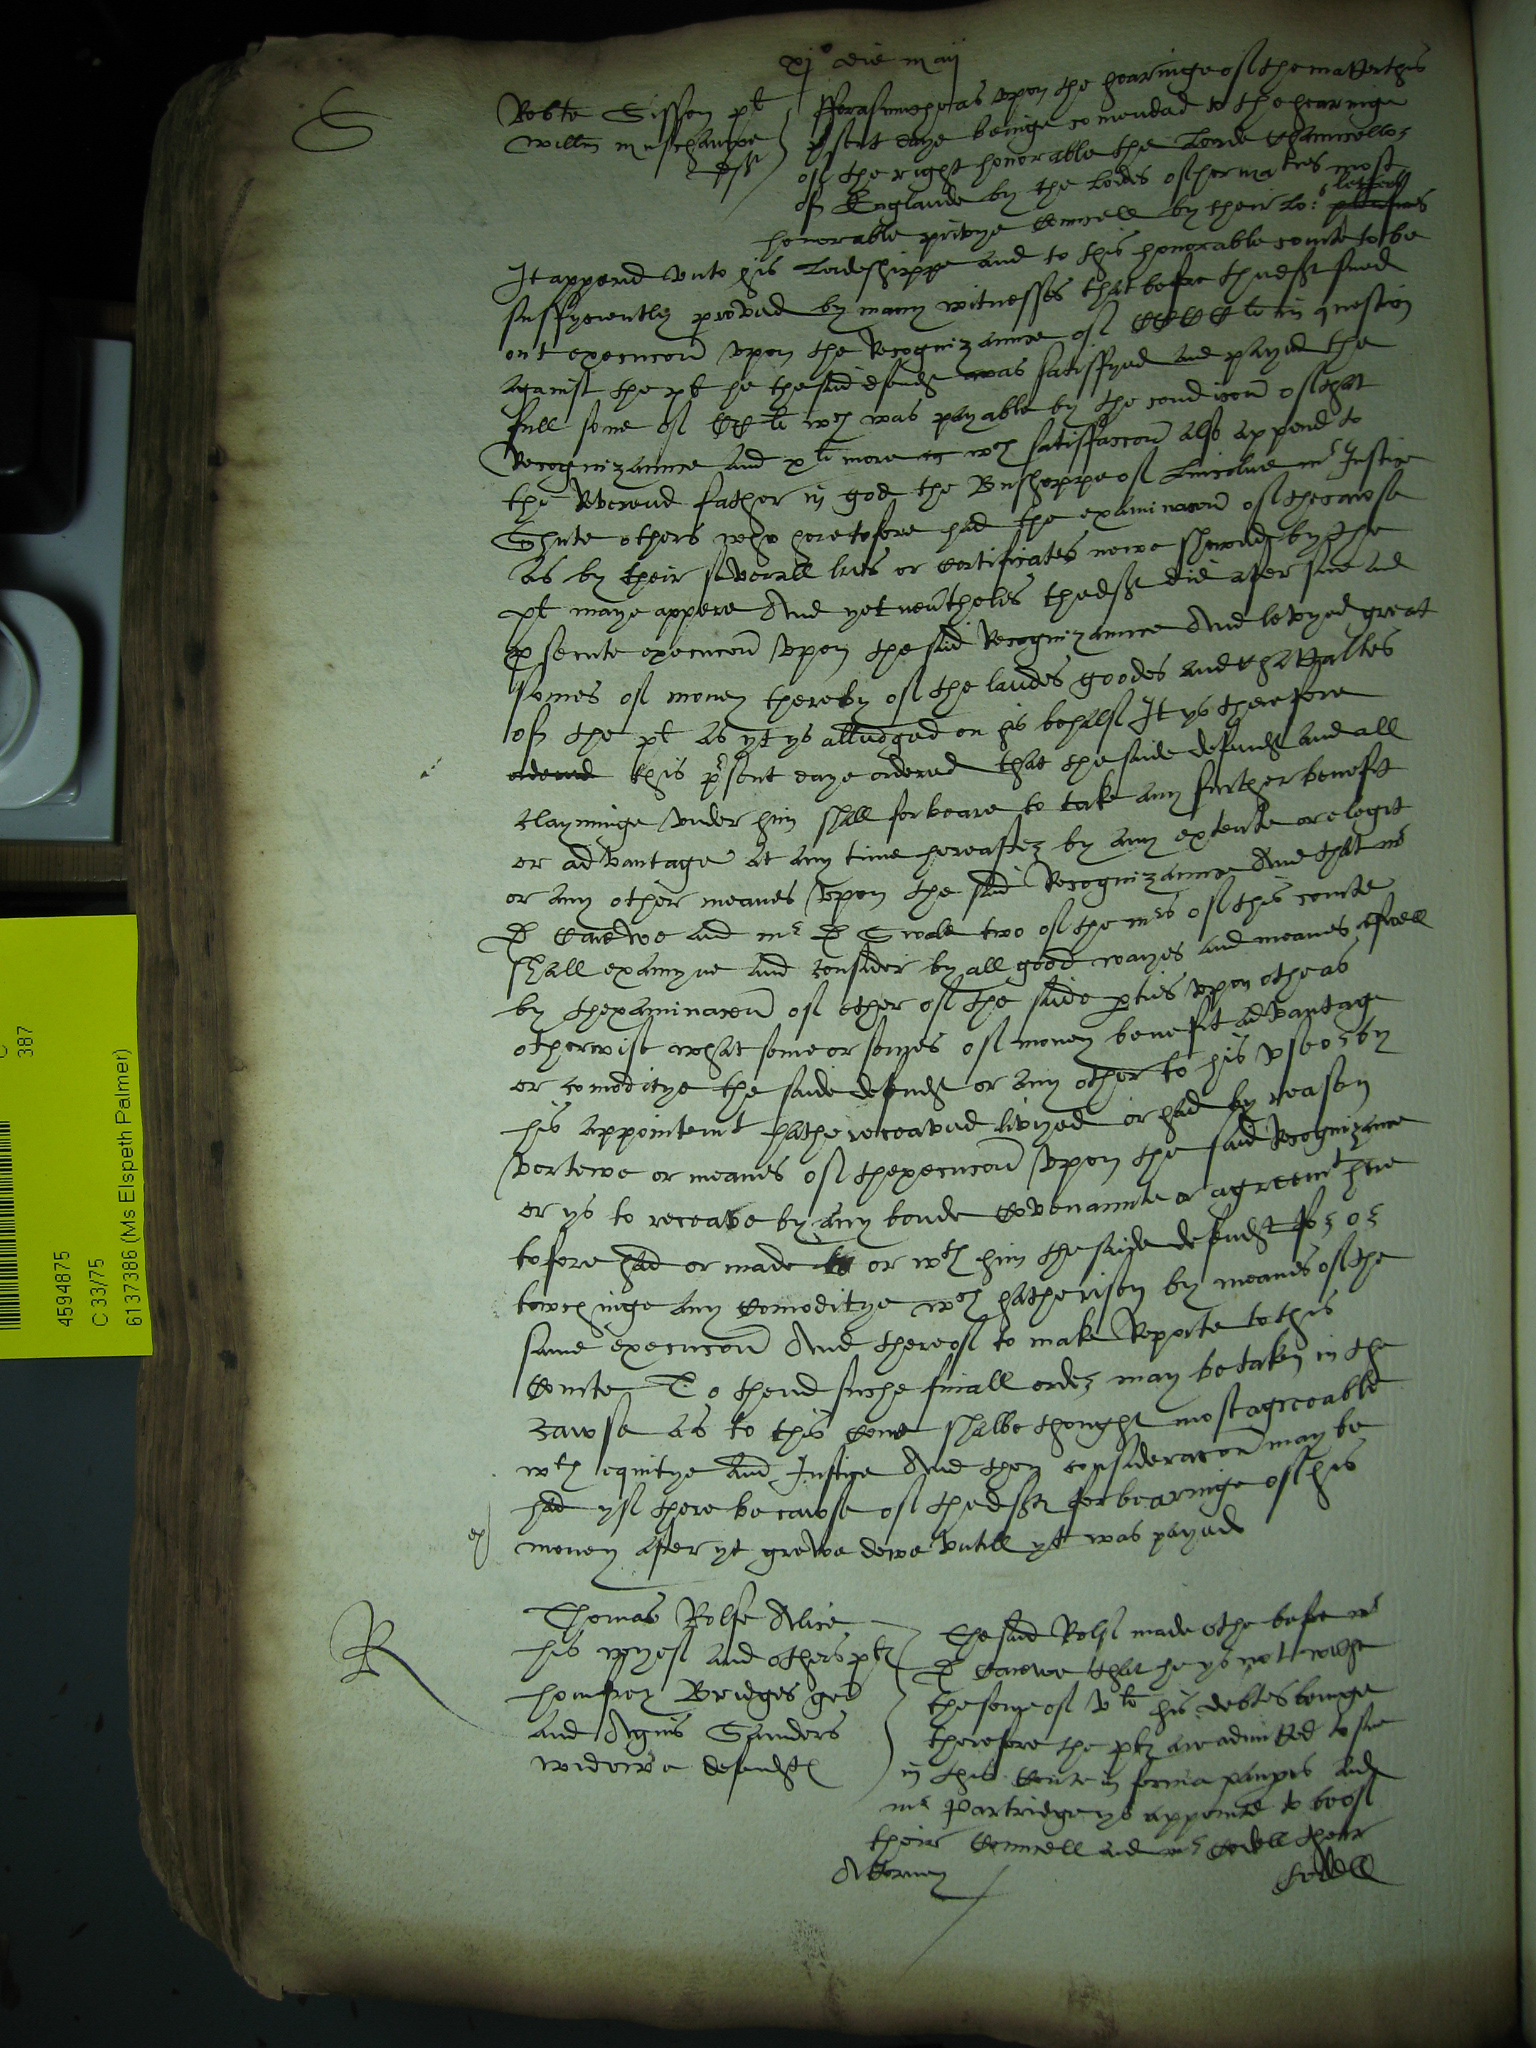 xj° die maij
S
Robte Sisson plt
willm muschampe
deft
Fforasmuche as vpon the hearinge of the matter this
psent daye beinge comended to the hearinge
of the right honorable the Lorde Chauncellor
of Englande by the lordes of her maties most
honorable privye Councell by their lo: lettres
It appered vnto his Lordshippe and to this honorable courte to be
suffycyently proved by many witnesses that before thedeft sued
out execucon vpon the Recognizaunce of CCCC li in question
against the plt he the said defendt was satisffyed and payed the
full some of CC li wch was payable by the condicon of that
Recognizaunce and x li more wch satisfaccon also appered to
the Reverend father in god the Busshoppe of Lincolne mr Justice
Shute others who heretofore had the examinacon of the cawse
as by their severall lres or Certificates nowe shewed by the
plt maye appere And yet neutheles thedeft did after sue and
psecute execucon vpon the said Recognizaunce And levyed great
somes of money thereby of the landes goodes and Chattalles
of the plt as yt ys alledged on his behalf It ys therefore
ordered this psent daye ordered that the saide defendt and all
clayminge vnder him shall forbeare to take any further benefit
or advantage at any time hereafter by any extente or elegit
or any other meanes vpon the said Recognizaunce And that mr
D Carewe and mr D Swale two of the mrs of this courte
shall examyne and consider by all good wayes and meanes aswell
by thexaminacon of ether of the saide pties vpon othe as
otherwise what some or somes of money benefit advantage
or comoditye the saide defendt or any other to his vse or by
his appointemt hathe receaved levyed or had by reason
vertewe or meanes of thexecucon vpon the said Recognizaunce
or ys to receave by any bonde Covenaunte or agreemt here
tofore had or made to or wth him the saide defendt for or
towchinge any Comoditye wch hathe risen by meanes of the
same execucon And thereof to make Reporte to this
Courte To thend suche finall order may be taken in the
cawse as to this Corte shalbe thought most agreeable
wth equitye and Justice And then consideracon may be
had yf there be cawse of thedeftes forbearinge of his
money after yt grewe dewe vntill yt was payed
ex
R
Thomas Rolfe Alice
his wyef and others pltes
homfrey Bridges gen
and Agnis Sanders
widowe defendtes
The said Rolf made othe before mr
D Carewe that he ys not worthe
the some of v li his debtes beinge
therefore the pltes are admitted to sue
in this Courte in forma paupis and
mr Partridge ys appointed to be of
their Councell and mr Cordell their
Attorney
Cordell
387
4594875
C 33/75
6137386 (Ms Elspeth Palmer)